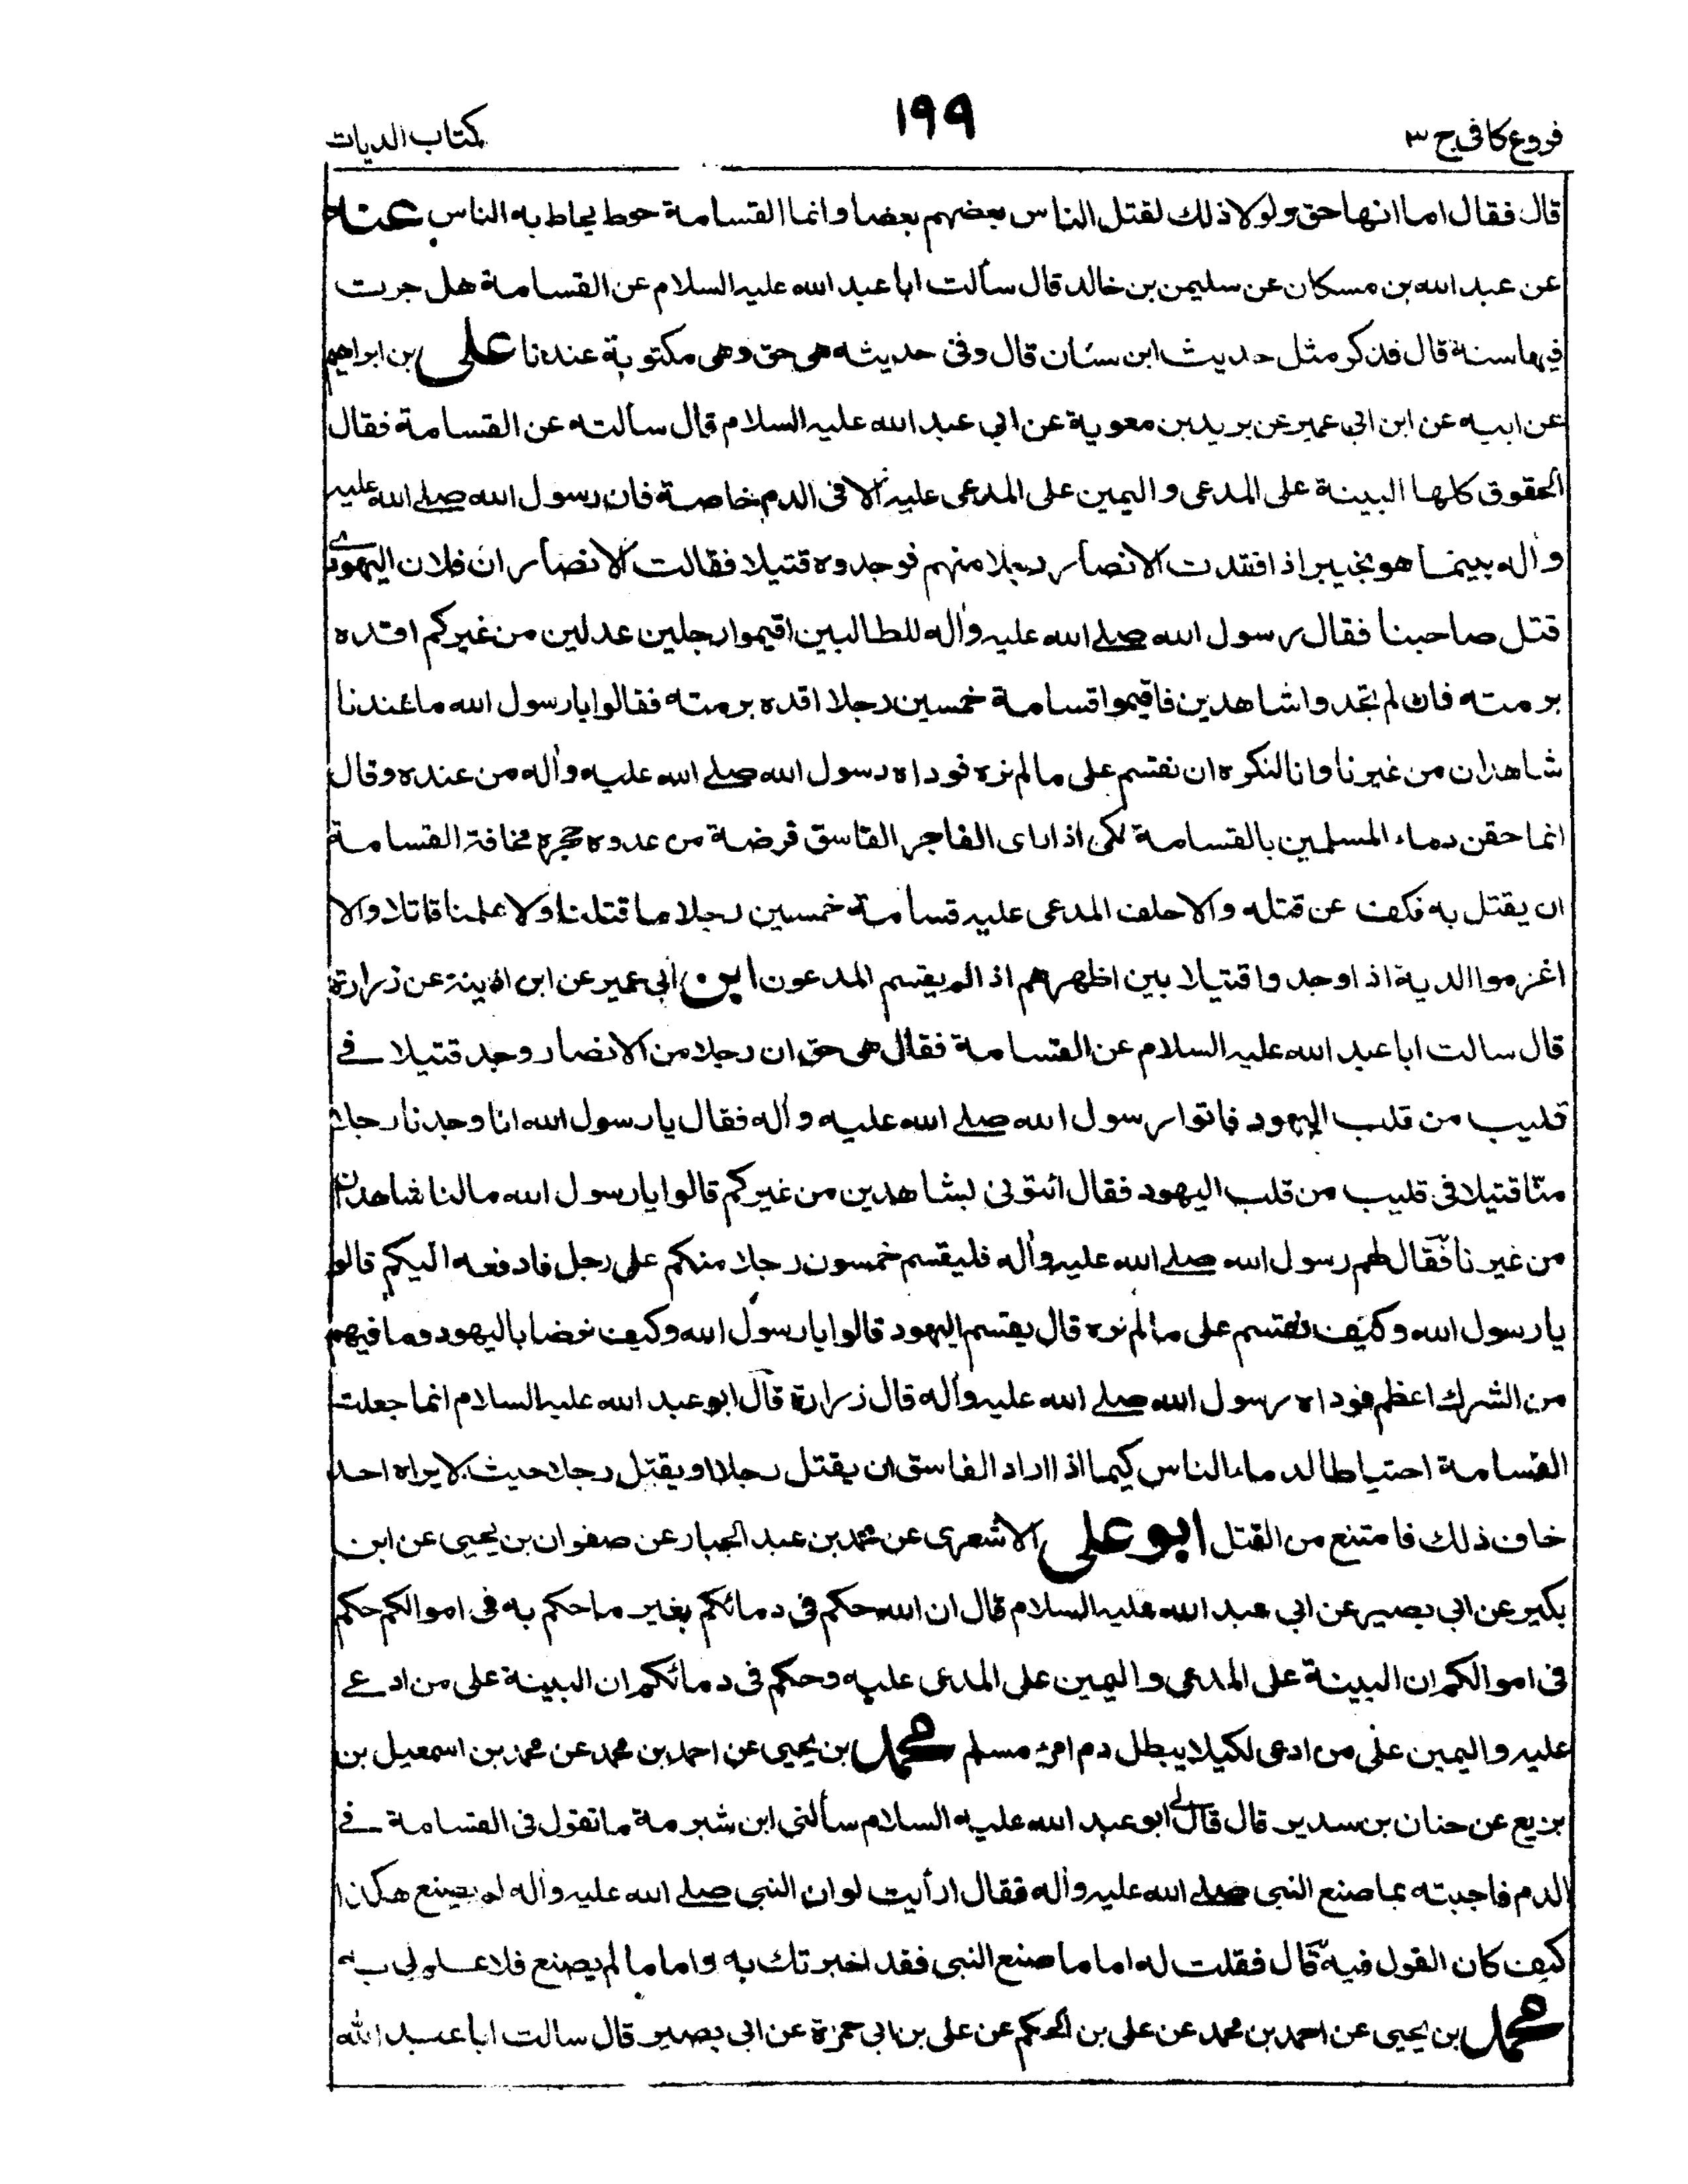 فروع كافى ج ٣
١٩٩
كتاب الديات
قال فقال اما انها حق ولولا ذلك لقتل الناس بعضهم بعضا وانما القسامة حوط يحاط به الناس عنه
عن عبد الله بن مسكان عن سليمن بن خالد قال سألت ابا عبد الله عليه السلام عن القسامة هل جرت
فيها سنة قال فذكر مثل حديث ابن سنان قال وفى حديثه هى حق وهى مكتوبة عندنا على بن ابراهيم
عن ابيه عن ابن ابى عمير عن بريد بن معوية عن ابي عبد الله عليه السلام قال سألته عن القسامة فقال
الحقوق كلها البينة على المدعى واليمين على المدعى عليه الا فى الدم خاصة فان رسول الله صلے الله عليه
وآله بينما هو بخيبر اذ افتقدت الانصار رجلا منهم فوجدوه قتيلا فقالت الانصار ان فلان اليهودے
قتل صاحبنا فقال رسول الله صلے الله عليه وآله للطالبين اقيموا رجلين عدلين من غيركم اقده
برمته فان لم تجدوا شاهدين فاقيموا قسامة خمسين رجلا اقده برمته فقالوا يا رسول الله ما عندنا
شاهدان من غيرنا وانا لنكره ان نقسم على ما لم نره فوداه رسول الله صلے الله عليه وآله من عنده وقال
انما حقن دماء المسلمين بالقسامة لكى اذا راى الفاجر الفاسق فرضة من عدوه حجزه مخافة القسامة
ان يقتل به فكف عن قتله والا حلف المدعى عليه قسامة خمسين رجلا ما قتلنا ولا علمنا قاتلا والا
اغرموا الدية اذا وجدوا قتيلا بين اظهرهم اذا لم يقسم المدعون ابن ابي عمير عن ابن اذينة عن زرارة
قال سالت ابا عبد الله عليه السلام عن القسامة فقال هى حق ان رجلا من الانصار وجد قتيلا فے
قليب من قلب اليهود فاتوا رسول الله صلے الله عليه وآله فقال يا رسول الله انا وجدنا رجلا
منّا قتيلا فى قليب من قلب اليهود فقال ائتونى بشاهدين من غيركم قالوا يا رسول الله ما لنا شاهدان
من غيرنا فقال لهم رسول الله صلے الله عليه وآله فليقسم خمسون رجلا منكم على رجل فادفعه اليكم قالوا
يا رسول الله وكيف نقسم على ما لم نره قال يقسم اليهود قالوا يا رسول الله وكيف نرضا باليهود وما فيهم
من الشرك اعظم فوداه رسول الله صلے الله عليه وآله قال زرارة قال ابو عبد الله عليه السلام انما جعلت
القسامة احتياطا لدماء الناس كيما اذا اراد الفاسق ان يقتل رجلا او يقتل رجلا حيث لا يراه احد
خاف ذلك فامتنع من القتل ابو على الاشعرى عن محمد بن عبد الجبار عن صفوان بن يحيى عن ابن
بكير عن ابى بصير عن ابي عبد الله عليه السلام قال ان الله حكم فى دمائكم بغير ما حكم به فى اموالكم حكم
فى اموالكم ان البينة على المدعى واليمين على المدعى عليه وحكم فى دمائكم ان البينة على من ادعے
عليه واليمين على من ادعى لكيلا يبطل دم امرئ مسلم محمد بن يحيى عن احمد بن محمد عن محمد بن اسمعيل بن
بزيع عن حنان بن سدير قال قال لے ابو عبد الله عليه السلام سألنى ابن شبرمة ما تقول فى القسامة فے
الدم فاجبته بما صنع النبى صلے الله عليه وآله فقال ارأيت لو ان النبى صلے الله عليه وآله لم يصنع هكذا
كيف كان القول فيه قال فقلت له اما ما صنع النبى فقد اخبرتك به واما ما لم يصنع فلا علم لى به
محمد بن يحيى عن احمد بن محمد عن على بن الحكم عن على بن ابى حمزة عن ابى بصير قال سالت ابا عبد الله